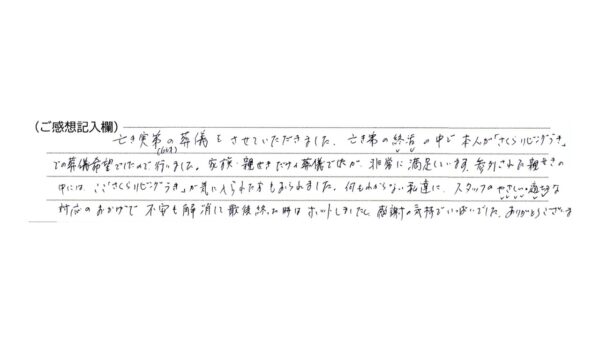 (ご感想記入欄)
亡き実弟の葬儀をさせていただきました。亡き弟の終活の中で本人が「さくらリビングうき」
での葬儀希望でしたので行いました。家族、親せきだけの葬儀でしたが、非常に満足しています。参列された親せきの
中には、ここ「さくらリビングうき」が気に入られた方もおられました。何もわからない私達に、スタッフのやさしい適切な
対応のおかげで不安も解消して最後終った時はホットしましたし、感謝の気持でいっぱいでした。ありがとうございま